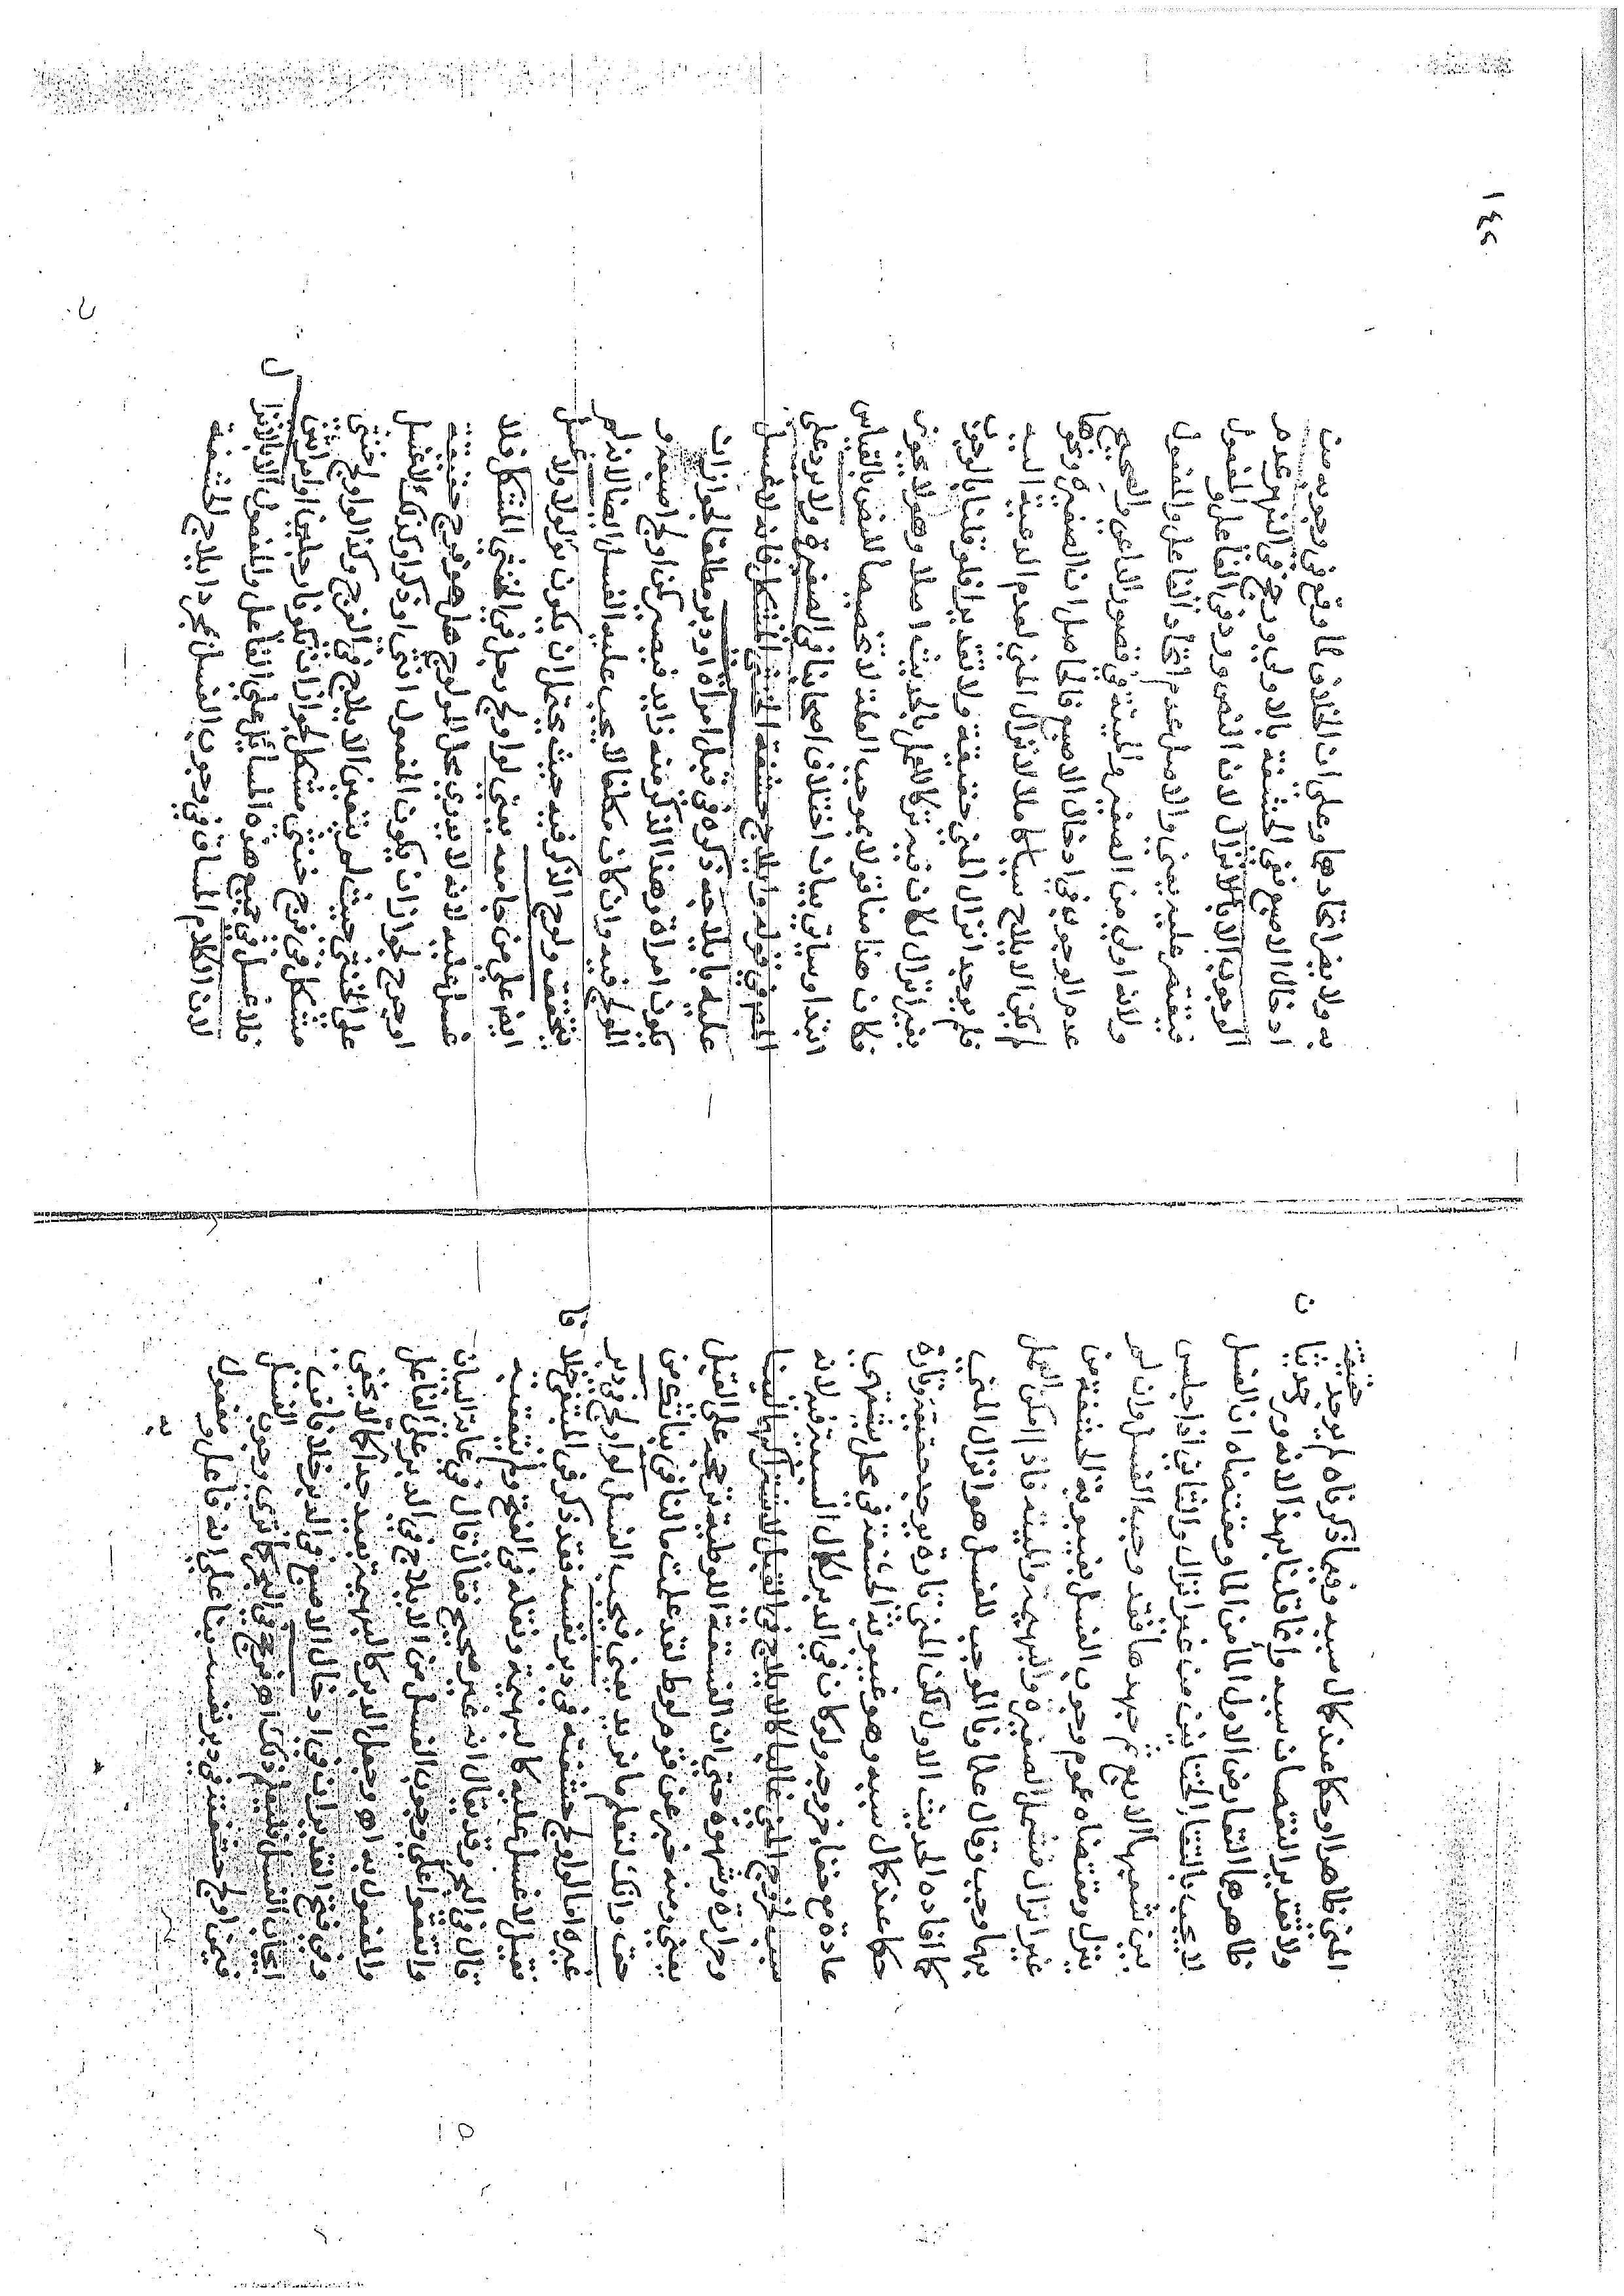 ١٤٥
المني ظاهرا وحكما عند كمال سببه وفيما ذكرناه لم يوجد حقيقة
ولا تقديرا لنقصان سببه وانما قلنا بهذا لانه ورد حديثان
ظاهرهما التعارض الاول الما من الما ومقتضاه ان الغسل
لا يجب بالتقا الختانين من غير انزال والثاني اذا جلس
بين شعبها الاربع ثم جهدها فقد وجب الغسل وان لم
ينزل ومقتضاه عموم وجوب الغسل بغيبوبة الحشفة من
غير انزال فتشمل الصغيرة والبهيمة والميتة فاذا امكن العمل
بهما وجب وقال علماونا الموجب للغسل هو انزال المني
كما افاده الحديث الاول لكن المني تارة يوجد حقيقة وتارة
حكما عند كمال سببه وهو غيبوبة الحشفة في محل يشتهى
عادة مع خفا خروجه ولو كان في الدبر لكمال السببية فيه لانه
سبب لخروج المني غالبا كالايلاج في القبل لاشتراكهما لينا
وحرارة وشهوة حتى ان الفسقة اللوطية ترجحه على القبل
يعني ومنه خبر عن قوم لوط لقد علمت ما لنا في بناتك من
حق وانك لتعلم ما نريد يعني فيجب الغسل لو اولج في دبر
غيره اما لو اولج حشفته في دبر نفسه فقد ذكر في المبتغى خلافا
فقيل لا غسل عليه كالبهيمة ونقله في الفتح ولم يتعقبه
قال في البحر وقد يقال انه غير صحيح فقال قال في غاية البيان
واتفقوا على وجوب الغسل من الايلاج في الدبر على الفاعل
والمفعول به اهـ وجعل الدبر كالبهيمة بعيد جدا كما لا يخفى
وفي فتح القدير ان في ادخال الاصبع في الدبر خلافا في
ايجاب الغسل فليعلم ذلك اهـ فرجح في البحر كما ترى وجوب الغسل
فيمن اولج حشفته في دبر نفسه بنا على انه فاعل ومفعول
به ولا يضر اتحادهما وعلى ان الخلاف كما وقع في وجوبه من
ادخال الاصبع ففي الحشفة بالاولى ورجح في النهر عدم
الوجوب الا بالانزال لان النص ورد في الفاعل والمفعول
فيقتصر عليه يعني والاصل عدم اتحاد الفاعل والمفعول
ولانه اولى من الصغيرة والميتة في قصور الداعي والصحيح
عدم الوجوب في ادخال الاصبع فالحاصل ان الصغيرة ونحوها
لم يكن الايلاج سببا كاملا لانزال المني لعدم الداعية اليه
فلم يوجد انزال المني حقيقة ولا تقديرا فلو قلنا بالوجوب
بغير انزال لكان فيه ترك العمل بالحديث اصلا وهو لا يجوز
فكان هذا منا قولا بموجب العلة لا تخصيصا للنص بالقياس
ابتدا وسياتي بيان اختلاف اصحابنا في الصغيرة ولا يرد على
المصـ في قوله وايلاج حشفة الخنثى المشكل فانه لا غسل
عليه بايلاجه ذكره في قبل امراة او دبر مطلقا لجواز ان
يكون امراة وهذا الذكر منه زايد فيصير كمن اولج اصبعه و
المولج فيه وان كان مكلفا لا يجب عليه الغسل ايضا لانه لم
يتحقق ولوج الذكر فيه حيث يحتمل ان يكون كالولد ولا غسل
ايضا على من جامعه يعني لو اولج رجل في الخنثى المشكل فلا
غسل عليه لانه لا يدري محل المولوج هل هو فرج حقيقة
او جرح لجواز ان يكون المفعول انثى او ذكرا وكذا لا غسل
على الخنثى حيث لم يتعين الايلاج في الفرج وكذا لو اولج خنثى
مشكل في فرج خنثى مشكل لجواز ان يكونا رجلين او امراتين
فلا غسل في جميع هذه المسائل على الفاعل والمفعول الا بالانزال
لان الكلام المساق في وجوب الغسل بمجرد ايلاج الحشفة